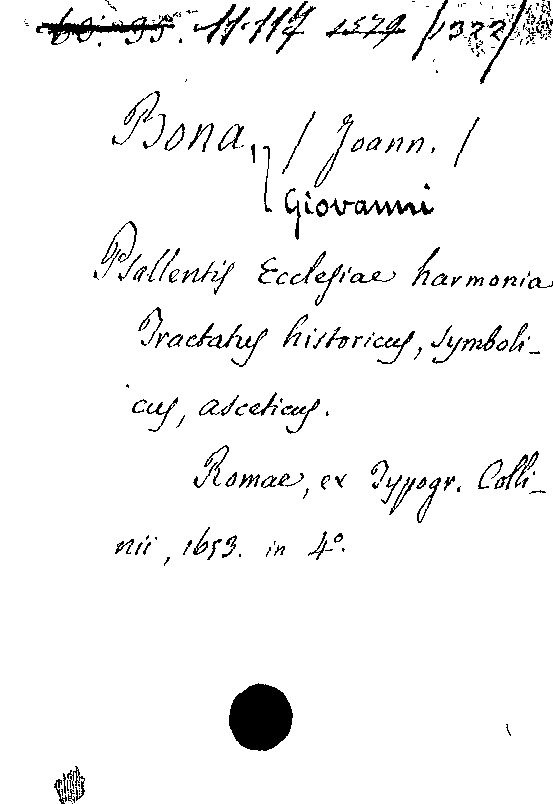 60. 35. 11.117 1579 /1322/
Bona, / Joann. /
Giovanni
Psallentis Ecclesiae harmonia
Tractatus historicus, symboli-
cus, asceticus.
Romae, ex Typogr. Colli-
nii, 1653. in 4º.